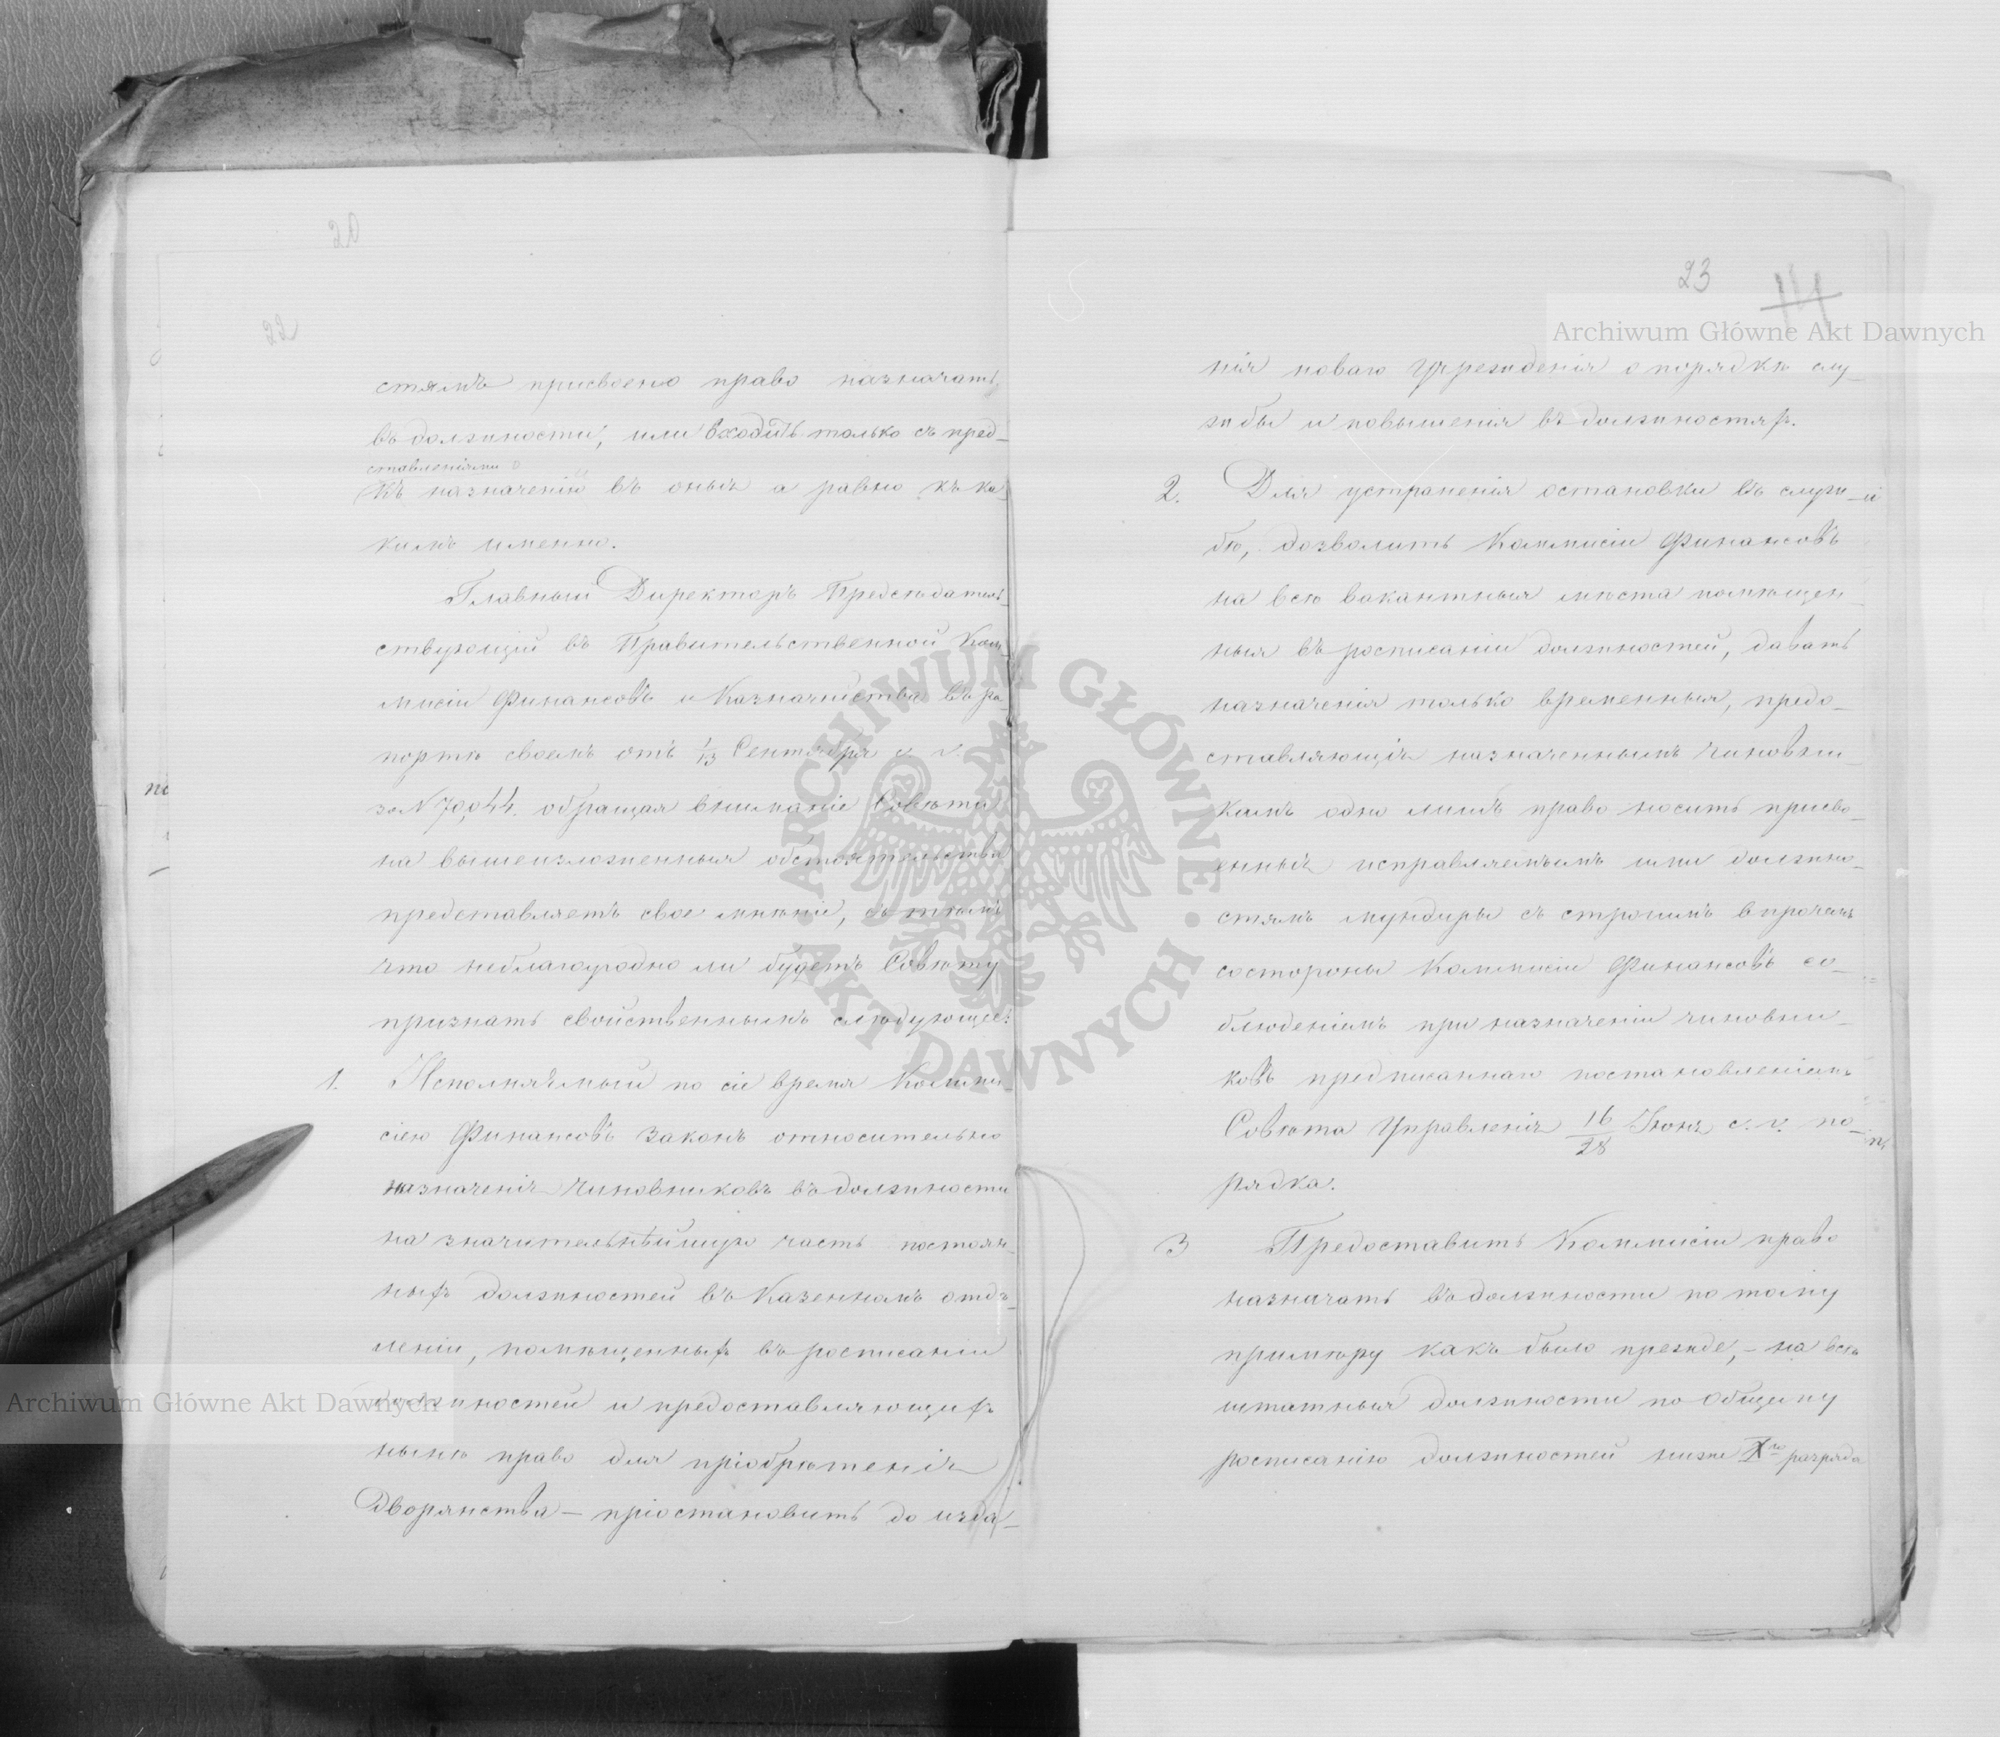 стямъ присвоено право назначать
въ должности, или входить только съ пред-
ставленіями о
къ назначенію въ оныя а равно къ ка
кимъ именно.
Главный Директоръ Предсѣдатель-
ствующій въ Правительственной Ком-
мисіи Финансовъ и Казначейства въ ра-
портѣ своемъ отъ 1/13 Сентября с. г.
за N 70,044. обращая вниманіе Совѣта
на вышеизложенныя обстоятельства
представляетъ свое мнѣніе, съ тѣмъ
что неблагоугодно ли будетъ Совѣту
признать свойственнымъ слѣдующее:
1. Исполняемый по сіе время Комми-
сіею Финансовъ Законъ относительно
назначенія чиновниковъ въ должности
на значительнѣйшую часть постоян-
ныхъ должностей въ Казенномъ отдѣ-
леніи, помѣщенныхъ въ росписаніи
должностей и предоставляющихъ
нынѣ право для пріобрѣтенія
Дворянства — пріостановить до изда-
23
14
нія новаго Учрежденія о порядкѣ слу-
жбы и повышенія въ должностяхъ.
2. Для устраненія остановки въ служ-
бѣ, дозволить Коммисіи Финансовъ
на всѣ вакантныя мѣста помѣщен-
ныя въ росписаніи должностей, давать
назначенія только временныя, предо-
ставляющія назначеннымъ чиновни-
камъ одно лишь право носить присво-
енныя исправляемымъ ими должно-
стямъ мундиры съ строгимъ впрочемъ
состороны Коммисіи Финансовъ со-
блюденіемъ при назначеніи чиновни-
ковъ предписаннаго постановленіемъ
Совѣта Управленія 16/28 Іюня с. г. по-
рядка.
3 Предоставить Коммисіи право
назначать въ должности по тому
примѣру какъ было прежде, — на всѣ
штатныя должности по общему
росписанію должностей ниже Xго разряда
Archiwum Główne Akt Dawnych
Archiwum Główne Akt Dawnych
ARCHIWUM GŁÓWNE AKT DAWNYCH